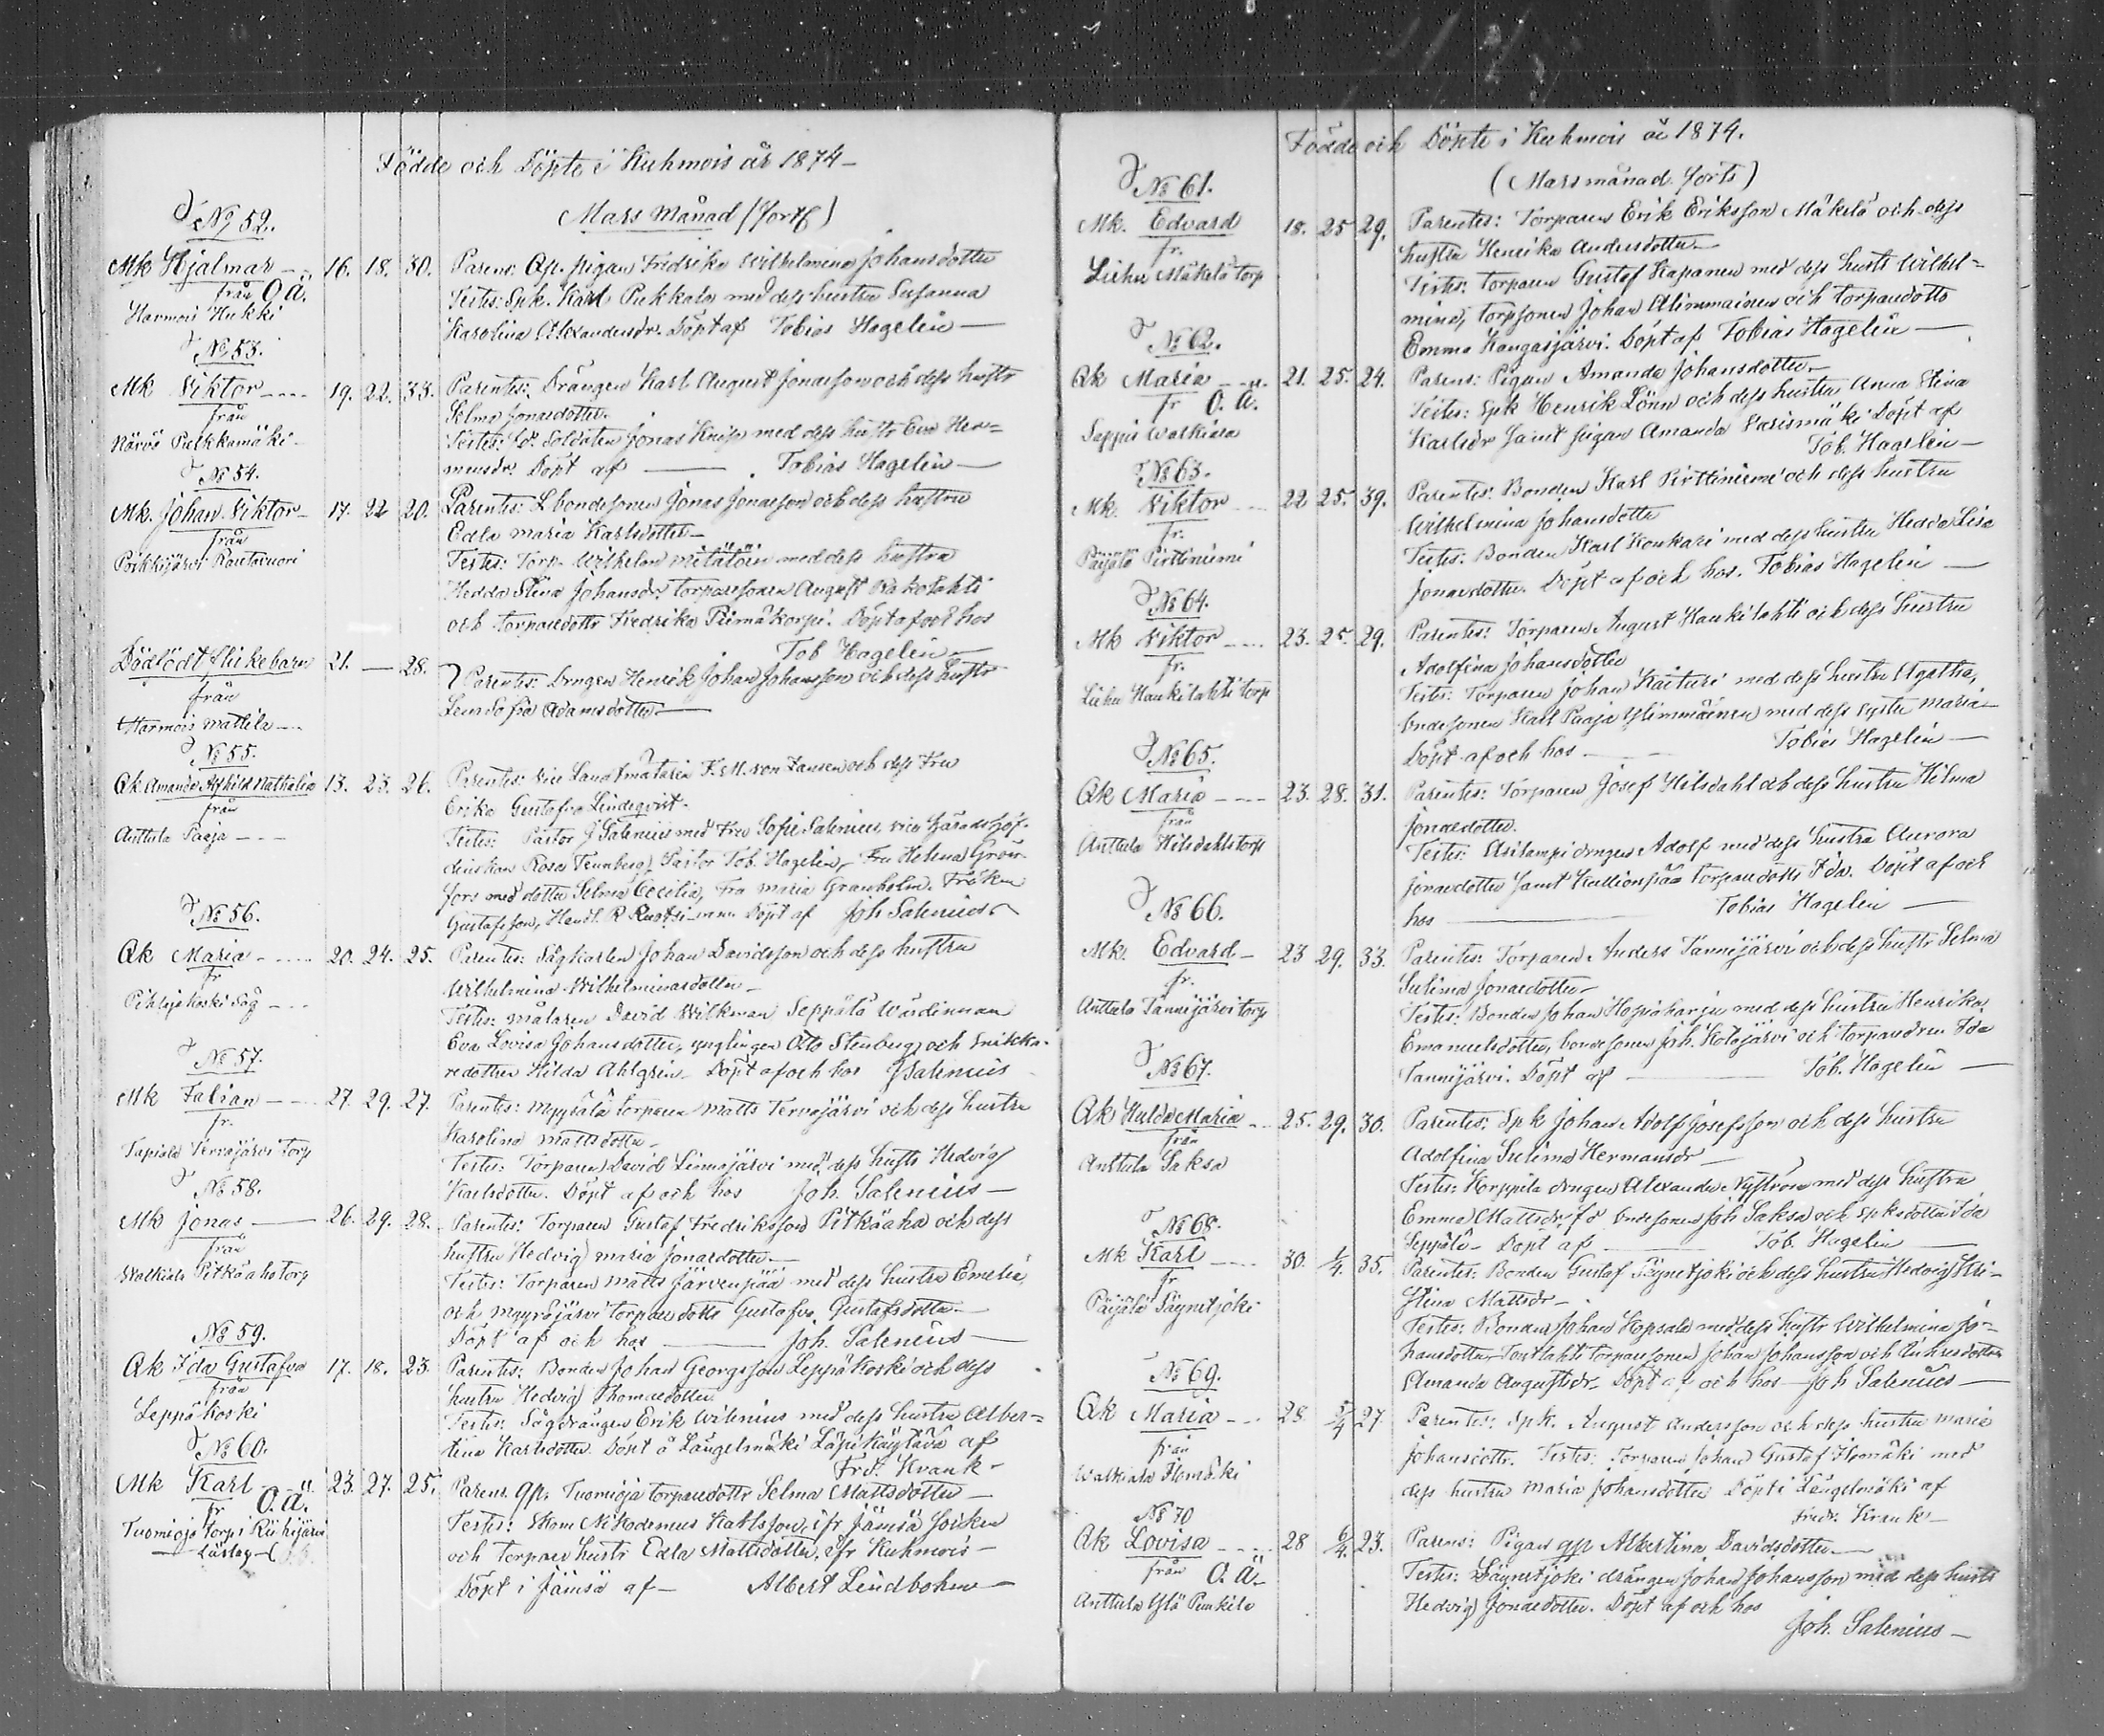 Födde och Döpte i Kuhmois år 1874 -
Mars Månad (forts)
№ 52.
Mk Hjalmar - - 16. 18. 30.
från O.ä.
Harmois Hukki
Parens: Qp. pigan Fredrika Wilhelmina Johansdotter
Testes: Spk. Karl Pukkala med dess hustru Susanna
Karolina Alexandersdr. Döpt af Tobias Hagelin -
№ 53.
Mk Viktor - - - 19. 22. 33.
från
Närvö Palkkamäki -
Parentes: Drängen Karl August Jonasson och dess hustr
Selma Jonasdotter.
Testes: fd Soldaten Jonas Knip med dess hustr Eva Her=
mansdr. Döpt af - Tobias Hagelin -
№ 54.
Mk. Johan Viktor - 17. 22 20.
från
Poikkijärvi Rautavuori
Parentes: L. bondesonen Jonas Jonasson och dess hustru
Edla Maria Karlsdotter -
Testes: Torp. Wilhelm med dess hustru
Hedda Stina Johansdr. torparesonen August
och torparedottr Fredrika Piimäkorpi. Döpt af och hos
Tob Hagelin -
Dödfödt flickebarn 21. - 28.
från
Harmois Mattila - -
Parentes: Drngen Henrik Johan Johansson och dess hustr
Lena Sofia Adamsdotter -
№ 55.
Qk. Amanda Alfhild Nathalia 13. 23. 26.
från
Anttula Paaja - - -
Parentes: vice Landtmätaren K. M. von Zansen och dess Fru
Erika Gustafva Lindeqvist.
Testes: Pastor J Salenius med Fru Sofie Salenius, vice häradshöf-
dinskan Rosa Tennberg, Pastor Tob. Hagelin, Fru Helena Grön-
fors med dotter Selma Cecilia, Fru Maria Granholm, Fröken
Gustafsson, Handl. R Ruotsi m.m. Döpt af Joh Salenius
№ 56.
Qk Maria - - - 20. 24. 25.
fr
Pihlajakoski Såg - - -
Parentes: Sågkarlen Johan Davidsson och dess hustru
Wilhelmina Wilhelminasdotter -
Testes: målaren David Wilkman Seppälä Wärdinnan
Eva Lovisa Johansdotter, ynglingen Otto Stenberg och snikka-
redottren Hilda Ahlgrén - Döpt af och hos J Salenius
№ 57.
Mk Fabian - - - 27. 29. 27.
fr.
Tapiala Tervajärvi torp
Parentes: Myysälä torparen Matts Tervajärvi och dess hustru
Karolina Mattsdotter -
Testes: Torparen David Linnajärvi med dess hustr Hedvig
Karlsdotter. Döpt af och hos Joh. Salenius -
№ 58.
Mk Jonas - 26. 29. 28.
från
Walkiala Pitkäaho torp
Parentes: Torparen Gustaf Fredriksson Pitkäaho och dess
hustru Hedvig Maria Jonasdotter -
Testes: Torparen Matts Järvenpää med dess hustru Emelia,
och Myyräjärvi torparedottr Gustafva Gustafsdotter -
Döpt af och hos - Joh. Salenius -
№ 59.
Qk Ida Gustafva 17. 18. 23.
från
Leppäkoski
Parentes: Bonden Johan Georgsson Leppäkoski och dess
hustru Hedvig Thomasdotter
Testes: Sågdrängen Erik Wilenius med dess hustru Alber=
tina Karlsdotter Döpt å Längelmäki af
Fred. Krank -
№ 60.
Mk Karl - - 23. 27. 25.
fr O.ä.
Tuomioja torp i Riihijärvi
Parens. Qp. Tuomioja torparedottr Selma Mattsdotter -
Testes: Skom Nikodemus Karlsson, ifr Jämsä socken
och torpare hustr Edla Mattsdotter, ifr Kuhmois -
Döpt i Jämsä af - Albert Lindbohm -
Födde och Döpte i Kuhmois år 1874.
(Mars månad forts)
№ 61.
Mk. Edvard 18. 25 29.
fr.
Liehu Mäkelä torp
Parentes: Torparen Erik Eriksson Mäkelä och dess
hustru Henrika Andersdotter -
Testes: torparen Gustaf Kapanen med dess hustr Wilhel=
mina, torpsonen Johan Alimmainen och torparedottr
Emma Kangasjärvi. Döpt af Tobias Hagelin -
№ 62.
Qk Maria - - 21. 25. 24.
fr O. ä.
Seppä Walkiala
Parens: Pigan Amanda Johansdotter -
Testes: Spk Henrik Lönn och dess hustru Anna Stina
Karlsdr samt pigan Amanda Döpt af
Tob. Hagelin -
№ 63.
Mk. Viktor - - 22 25. 39.
fr.
Päijälä Pirttiniemi
Parentes: Bonden Karl Pirttiniemi och dess hustru
Wilhelmina Johansdotter
Testes: Bonden Karl Konkari med dess hustru Hedda Lisa
Jonasdotter. Döpt af och hos. Tobias Hagelin -
№ 64.
Mk Viktor - - - 23. 25. 29.
fr.
Liehu Haukilahti torp
Parentes: Torparen August Haukilahti och dess hustru
Adolfina Johansdotter
Testes: Torparen Johan Kaituri med dess hustru Agatha,
bondesonen Karl Paaja Ylimmäinen med dess syster Maria -
Döpt af och hos - Tobias Hagelin -
№ 65.
Qk Maria - - - 23. 28. 31.
från
Anttula Hilsdahls torp
Parentes: Torparen Josef Hilsdahl och dess hustru Hilma
Jonasdotter.
Testes: Asilampi drngen Adolf med dess hustru Aurora
Jonasdotter samt Kallionpää torparedottr Ida. Döpt af och
hos - Tobias Hagelin -
№ 66.
Mk. Edvard - 23 29. 33.
fr.
Anttula Tannijärvi torp
Parentes: Torparen Anders Tannijärvi och dess hustr Selma
Sulima Jonasdotter -
Testes: Bonden Johan Hopiaharju med dess hustru Henrika
Emanuelsdotter, bondesonen Joh. Kotajärvi och torparedren Ida
Tannijärvi. Döpt af - Tob. Hagelin -
№ 67.
Qk Hulda Maria - - 25. 29. 30.
från
Anttula Saksa
Parentes: Spk Johan Adolf Josefsson och dess hustru
Adolfina Sulima Hermansdr -
Testes: Korppila drngen Alexander Nyström med dess hustru
Emma Mattsdr, fd bondesonen Joh Saksa och Spksdotter Ida
Seppälä - Döpt af - Tob. Hagelin -
№ 68.
Mk Karl - - - 30. 1/4. 35.
fr
Päijälä Säynetjoki
Parentes: Bonden Gustaf Säynetjoki och dess hustru Hedvig Kri-
stina Mattsdr -
Testes: Bonden Johan Hopsala med dess hustr Wilhelmina Jo=
hansdotter, torparesonen Johan Johansson och
Amanda Augustsdr - Döpt af och hos - Joh Salenius -
№ 69.
Qk Maria - - 28 5/4 27.
från
Walkiala Ilomäki
Parentes: Spk. August Andersson och dess hustru Maria
Johansdottr. Testes: Torparen Johan Gustaf Ilomäki med
dess hustru Maria Johansdotter Döpt i Längelmäki af
Fredr. Krank -
№ 70
Qk Lovisa - - - 28 6/4. 23.
från O. Ä.
Anttula Ylä Punkila
Parens: Pigan qp Albertina Davidsdotter -
Testes: Säynetjoki drängen Johan Johansson med dess hustr
Hedvig Jonasdotter. Döpt af och hos
Joh. Salenius -